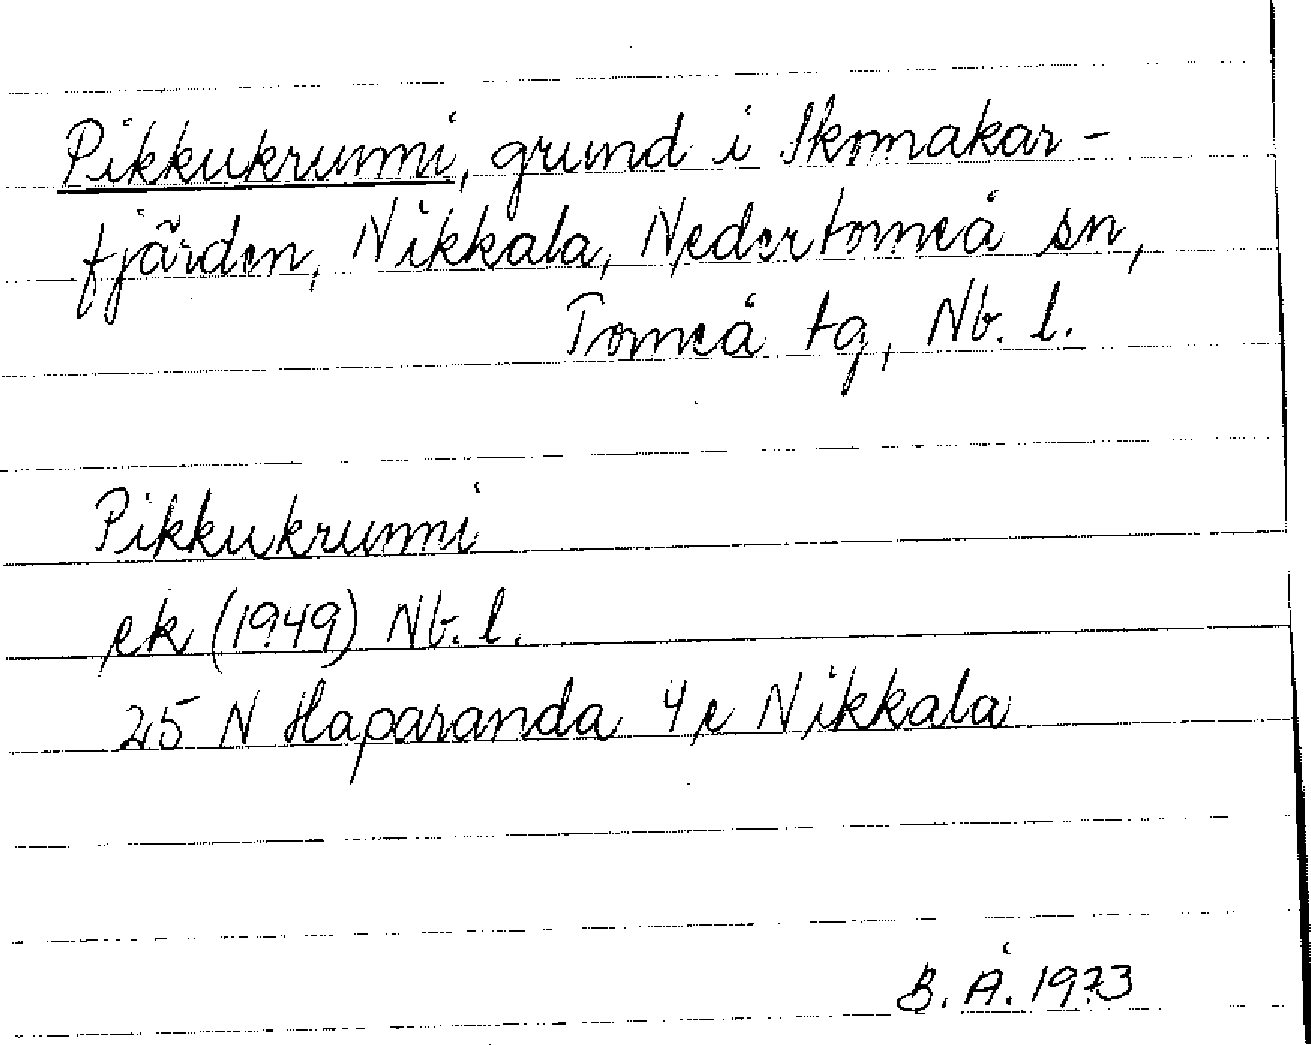 Pikkukrunni, grund i Skomakar-
fjärden, Nikkala, Nedertorneå sn,
Torneå tg, Nb. l.
Pikkukrunni
ek (1949) Nb. l.
25 N Haparanda 4 e Nikkala
B. Å. 1973